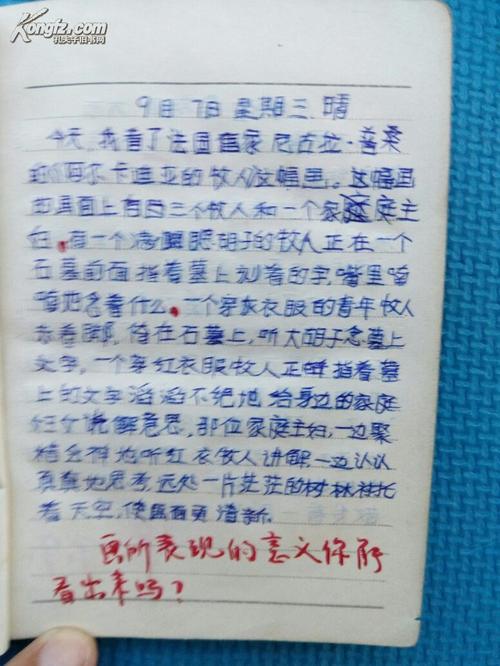 Kongfz.com
孔夫子旧书网
9月7日星期三.晴
今天,我看了法国画家尼古拉·普桑
的《阿尔卡迪亚的牧人》这幅画。这幅画
的画面上有四三个牧人和一个家庭主
妇,有一个满腮胡子的牧人正在一个
石墓前面指着墓上刻着的字,嘴里喃
喃地念着什么,一个穿灰衣服的青年牧人
赤着脚,倚在石墓上,听大胡子念墓上
文字,一个穿红衣服牧人正指着墓
上的文字滔滔不绝地给身边的家庭
妇女说解意思,那位家庭主妇,一边聚
精会神地听红衣牧人讲解,一边认认
真真地思考,远处一片茫茫的树林衬托
着天空,使画面更清新.
画所表现的意义你能
看出来吗?